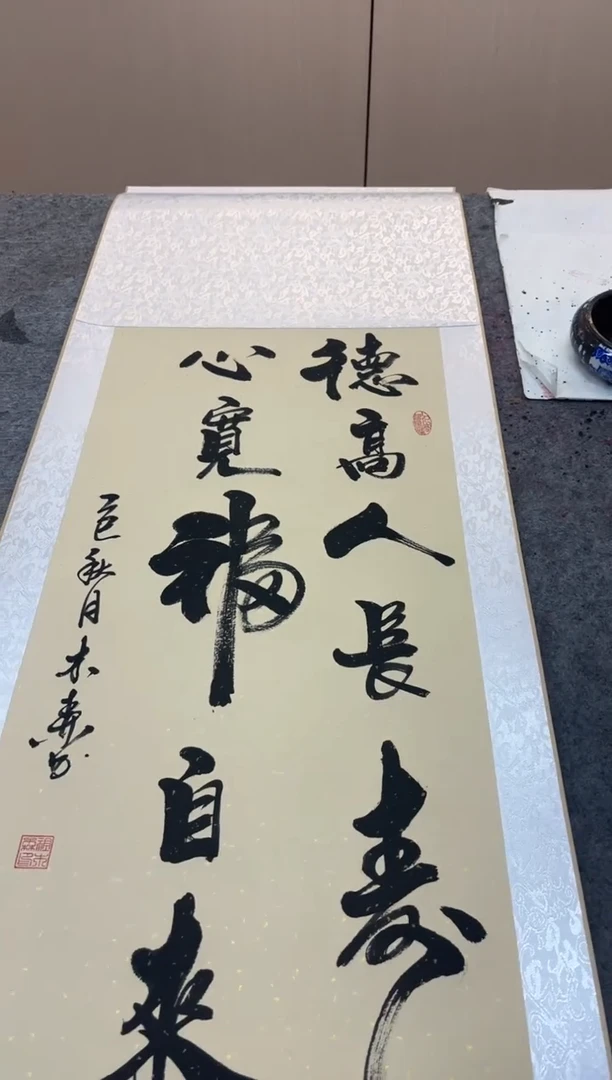 德高人長壽
心寬福自來
乙巳秋月木森書